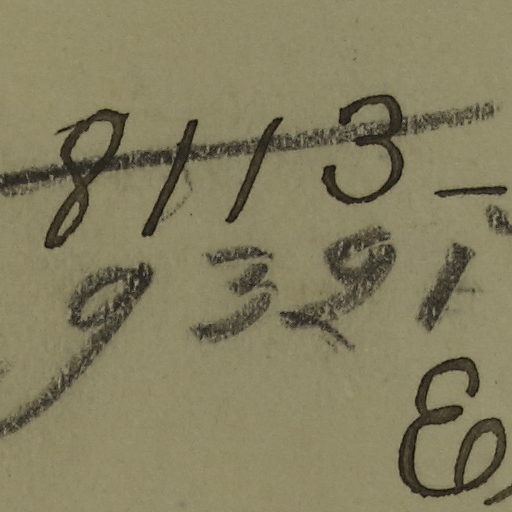 8113 –
9391